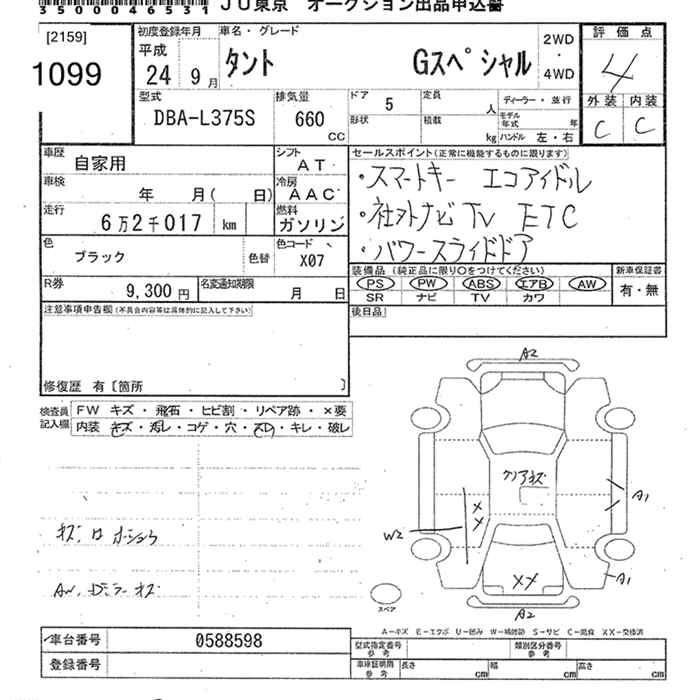 3500046531 JU東京 オークション出品申込書
[2159] 初度登録年月 車名・グレード 評価点
1099 平成 24 9月 タント Gスペシャル 2WD・4WD 4
型式 排気量 ドア 5 定員 人 ディーラー・並行 外装 内装
DBA-L375S 660 CC 形状 積載 kg モデル年式 年 ハンドル 左・右 C C
車歴 自家用 シフト AT セールスポイント(正常に機能するものに限ります)
車検 年 月( 日) 冷房 AAC ・スマートキー エコアイドル
走行 6万2千017 km 燃料 ガソリン ・社外ナビ TV ETC
色 ブラック 色替 色コード X07 ・パワースライドドア
装備品(純正品に限り○をつけてください) 新車保証書
R券 9,300円 名変通知期限 月 日 PS PW ABS エアB AW 有・無
SR ナビ TV カワ
注意事項申告欄(不具合内容等は具体的に記入して下さい) 後日品
修復歴 有〔箇所 〕
検査員記入欄 FW キズ・飛石・ヒビ割・リペア跡・×要
内装 キズ・汚レ・コゲ・穴・スレ・キレ・破レ
A2
A1
W2
XX
XX A1
スペア
A2
A-キズ E-エクボ U-凹み W-補修跡 S-サビ C-腐食 XX-交換済
車台番号 0588598 型式指定番号 参考 類別区分番号 参考
登録番号 車庫証明用 参考 長さ cm 幅 cm 高さ cm